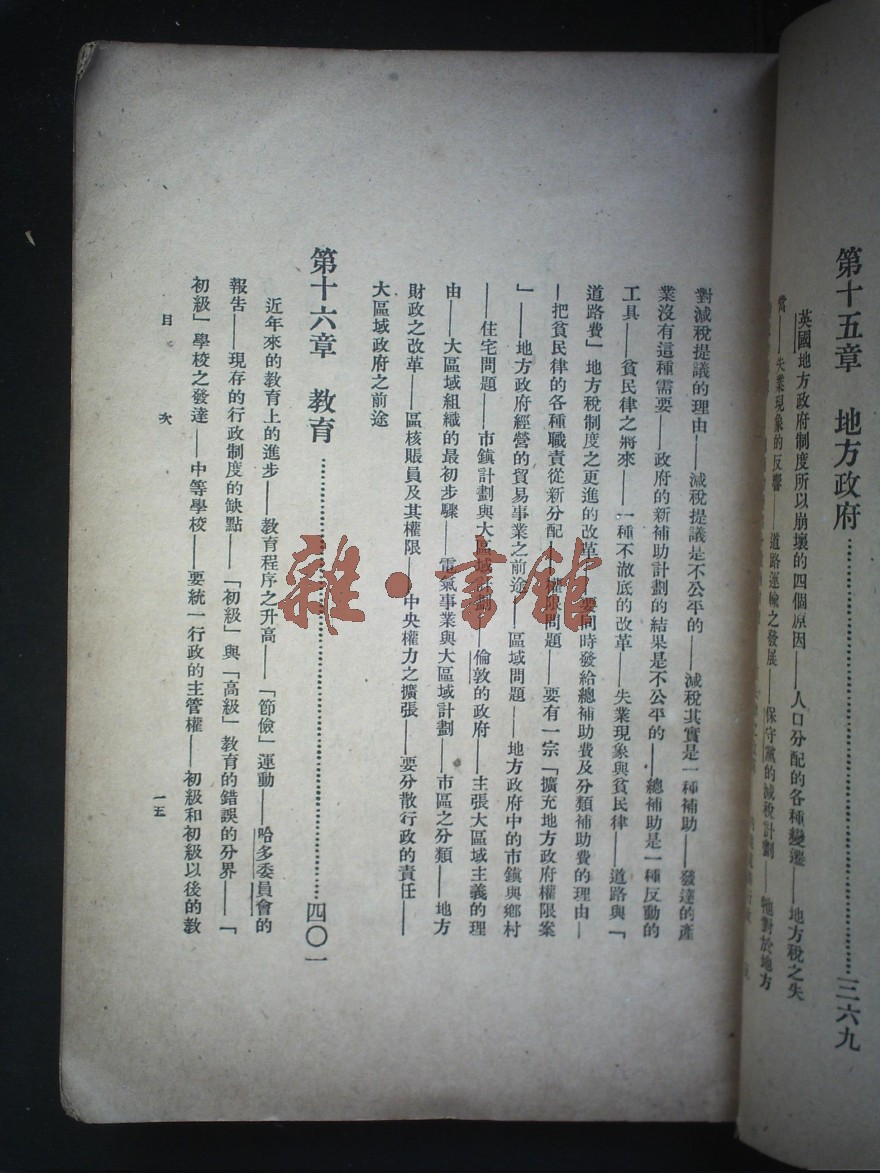 第十五章　地方政府……三六九
英國地方政府制度所以崩壞的四個原因——人口分配的各種變遷——地方稅之失
當——失業現象的反響——道路運輸之發展——保守黨的減稅計劃——牠對於地方
對減稅提議的理由——減稅提議是不公平的——減稅其實是一種補助——發達的產
業沒有這種需要——政府的新補助計劃的結果是不公平的——總補助是一種反動的
工具——貧民律之將來——一種不澈底的改革——失業現象與貧民律——道路與「
道路費」地方稅制度之更進的改革——要同時發給總補助費及分類補助費的理由—
—把貧民律的各種職責從新分配——權限問題——要有一宗「擴充地方政府權限案
」——地方政府經營的貿易事業之前途——區域問題——地方政府中的市鎮與鄉村
——住宅問題——市鎮計劃與大區域計劃——倫敦的政府——主張大區域主義的理
由——大區域組織的最初步驟——電氣事業與大區域計劃——市區之分類——地方
財政之改革——區核賬員及其權限——中央權力之擴張——要分散行政的責任——
大區域政府之前途
第十六章　教育……四〇一
近年來的教育上的進步——教育程序之升高——「節儉」運動——哈多委員會的
報告——現存的行政制度的缺點——「初級」與「高級」教育的錯誤的分界——「
初級」學校之發達——中等學校——要統一行政的主管權——初級和初級以後的教
目次　一五
雜·書館